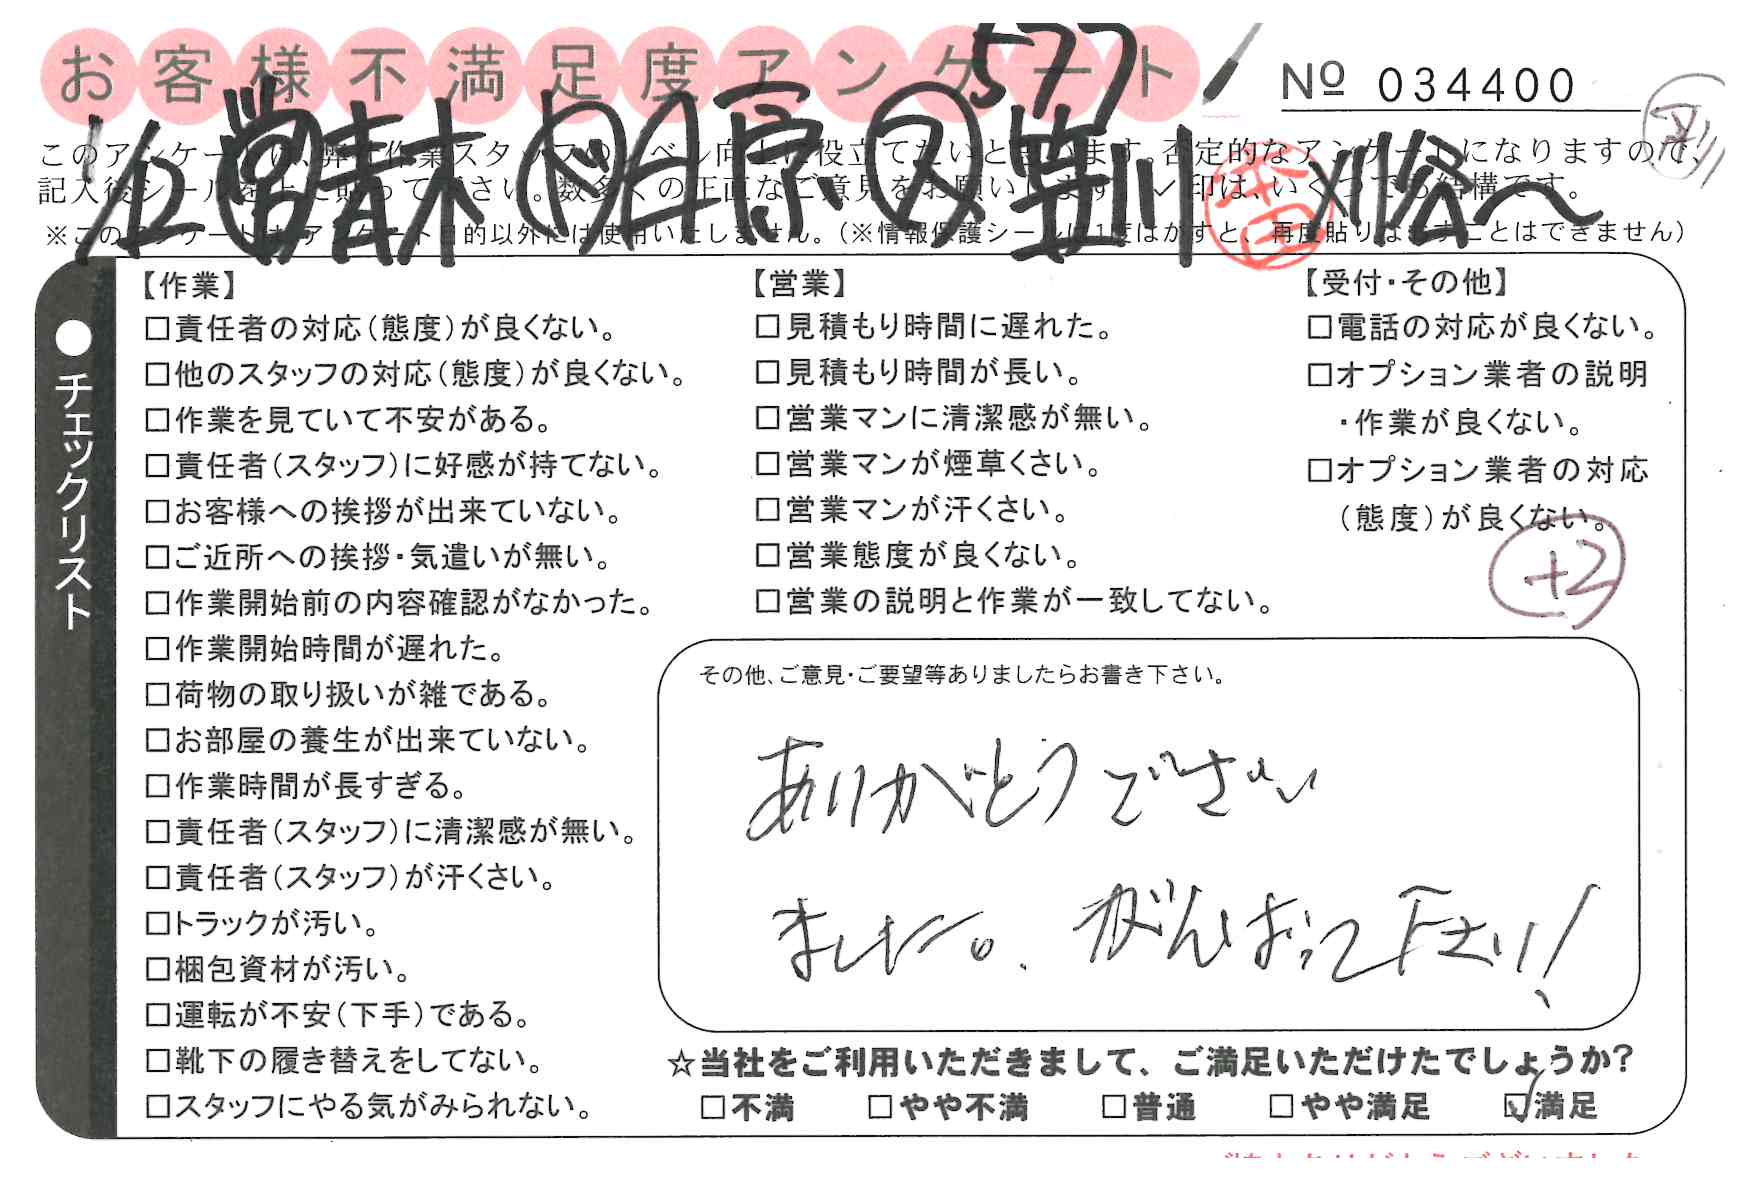 お客様不満足度アンケート
577
№ 034400
1/12 営 青木 ド 井原 又 笠川
このアンケートは、弊社作業スタッフのレベル向上に役立てたいと思います。否定的なアンケートになりますので、
記入後シールを上に貼って下さい。数多くの正直なご意見をお願いします。✓印は、いくつでも結構です。
※このアンケートは、アンケート目的以外には使用いたしません。(※情報保護シールは1度はがすと、再度貼りなおすことはできません)
●チェックリスト
【作業】
□責任者の対応(態度)が良くない。
□他のスタッフの対応(態度)が良くない。
□作業を見ていて不安がある。
□責任者(スタッフ)に好感が持てない。
□お客様への挨拶が出来ていない。
□ご近所への挨拶・気遣いが無い。
□作業開始前の内容確認がなかった。
□作業開始時間が遅れた。
□荷物の取り扱いが雑である。
□お部屋の養生が出来ていない。
□作業時間が長すぎる。
□責任者(スタッフ)に清潔感が無い。
□責任者(スタッフ)が汗くさい。
□トラックが汚い。
□梱包資材が汚い。
□運転が不安(下手)である。
□靴下の履き替えをしてない。
□スタッフにやる気がみられない。
【営業】
□見積もり時間に遅れた。
□見積もり時間が長い。
□営業マンに清潔感が無い。
□営業マンが煙草くさい。
□営業マンが汗くさい。
□営業態度が良くない。
□営業の説明と作業が一致してない。
【受付・その他】
□電話の対応が良くない。
□オプション業者の説明
・作業が良くない。
□オプション業者の対応
(態度)が良くない。
+2
その他、ご意見・ご要望等ありましたらお書き下さい。
ありがとうございい
ました。がんばって下さい!
☆当社をご利用いただきまして、ご満足いただけたでしょうか?
□不満 □やや不満 □普通 □やや満足 ☑満足